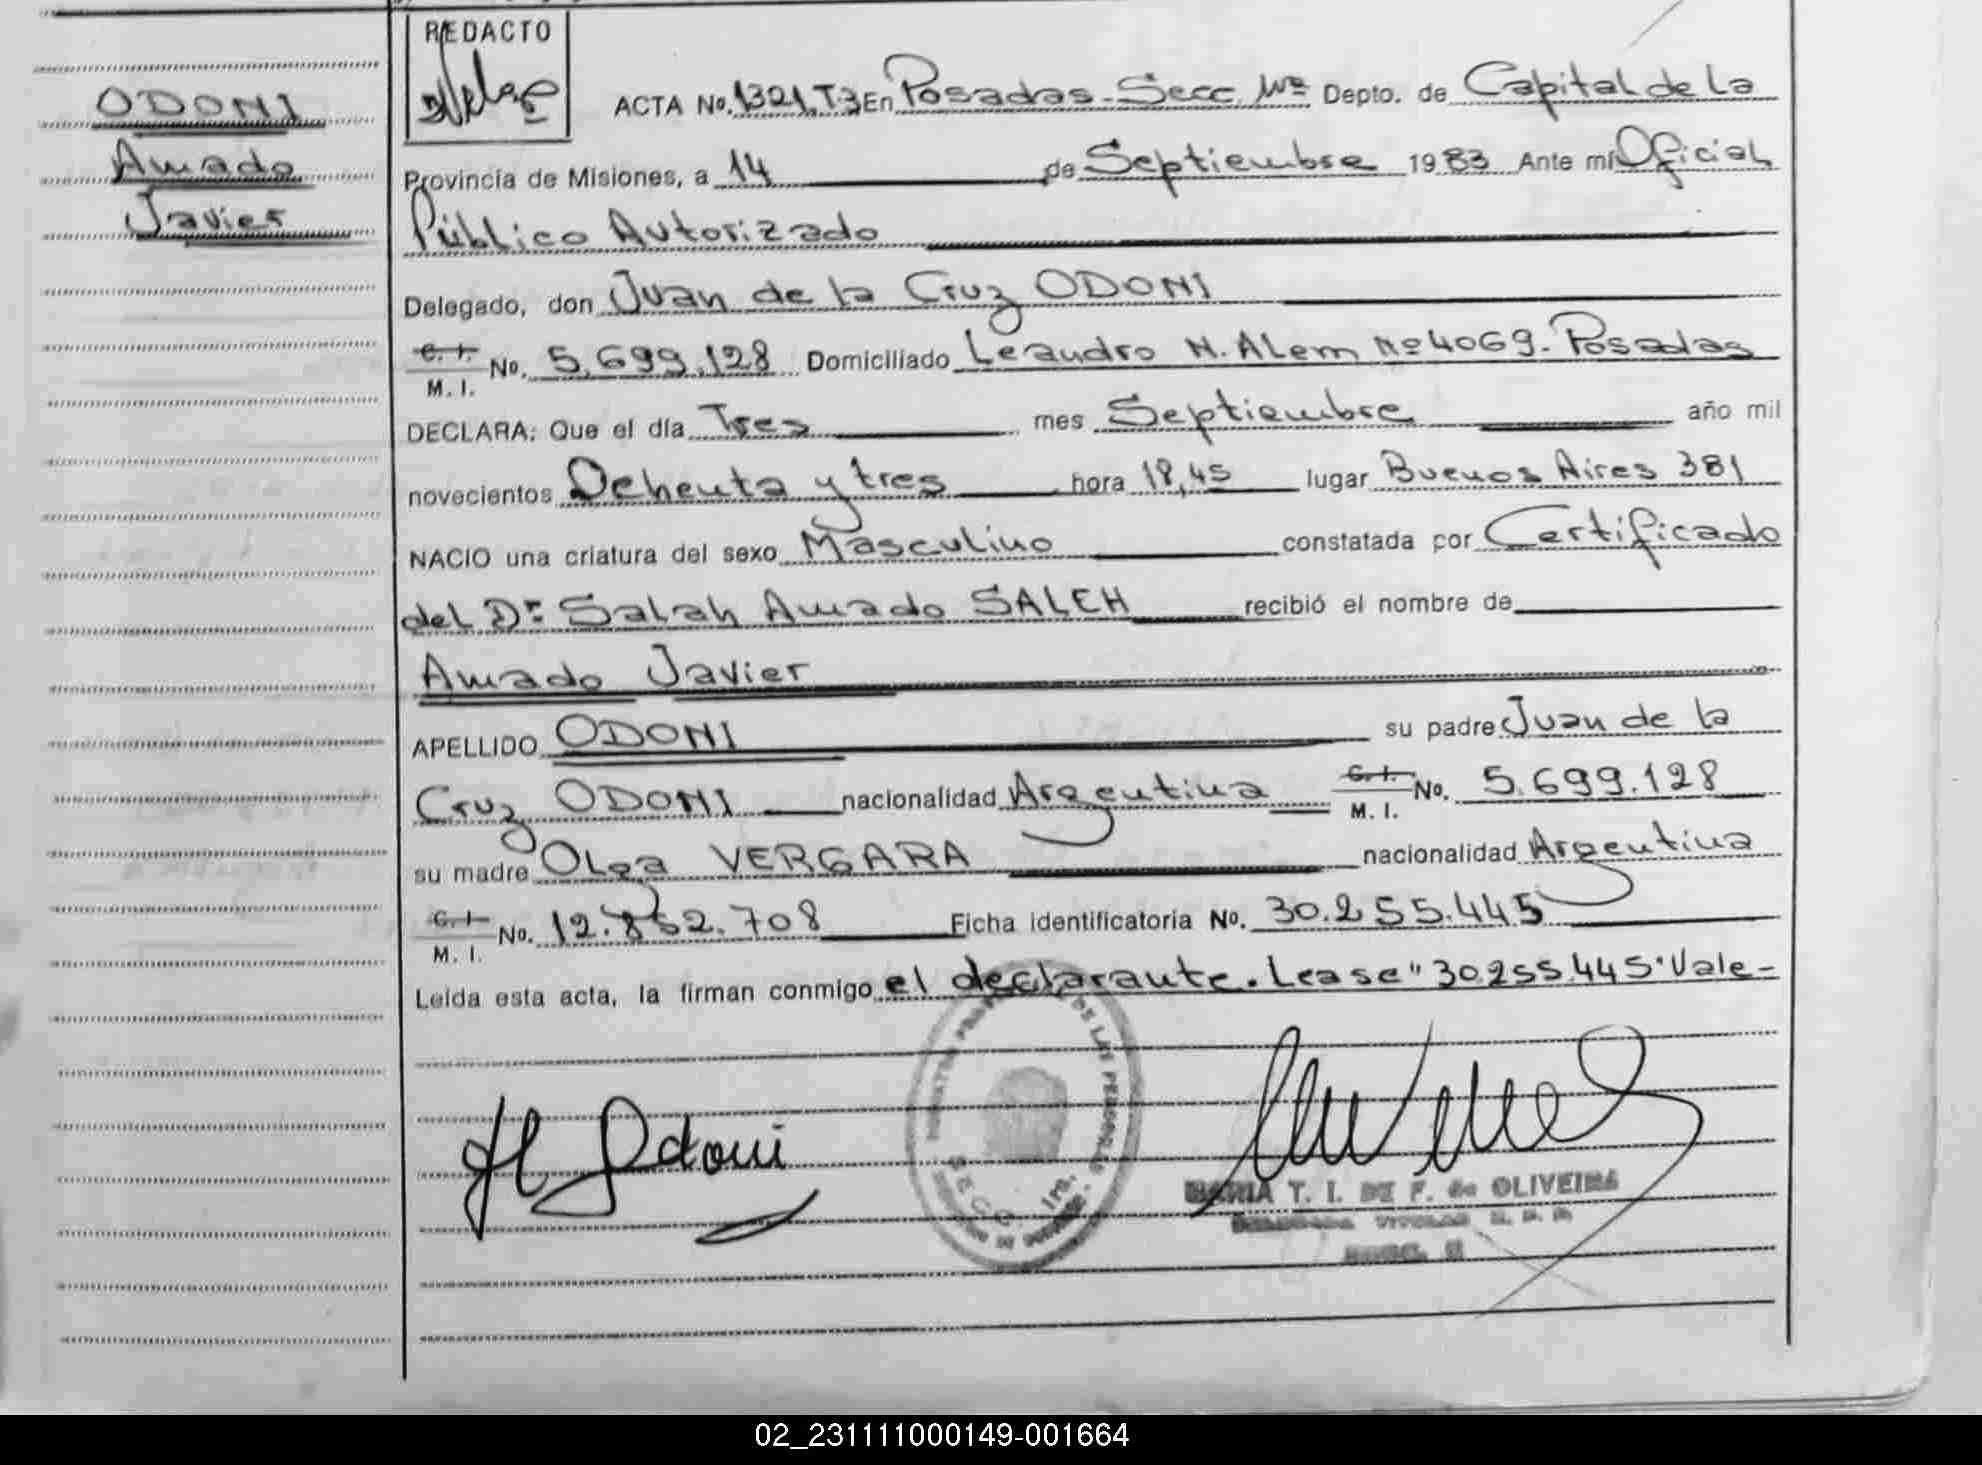 REDACTO
ODONI
Amado
Javier
ACTA No. 1321, T3 En Posadas - Secc. 1ra Depto. de Capital de La
Provincia de Misiones, a 14 de Septiembre 1983 Ante mí Oficial
Público Autorizado
Delegado, don Juan de la Cruz ODONI
C. I. M. I. No. 5.699.128 Domiciliado Leandro N. Alem Nº 4069 - Posadas
DECLARA: Que el día Tres mes Septiembre año mil
novecientos Ochenta y tres hora 18,45 lugar Buenos Aires 381
NACIO una criatura del sexo Masculino constatada por Certificado
del Dr. Salah Amado SALEH recibió el nombre de
Amado Javier
APELLIDO ODONI su padre Juan de la
Cruz ODONI nacionalidad Argentina C. I. M. I. No. 5.699.128
su madre Olga VERGARA nacionalidad Argentina
C. I. M. I. No. 12.852.708 Ficha identificatoria No. 30.255.445
Leida esta acta, la firman conmigo el declarante. Lease "30.255.445" Vale=
Odoni
DE LAS PERSONAS
SECC. 1ra.
MARIA T. I. DE F. de OLIVEIRA
02_231111000149-001664